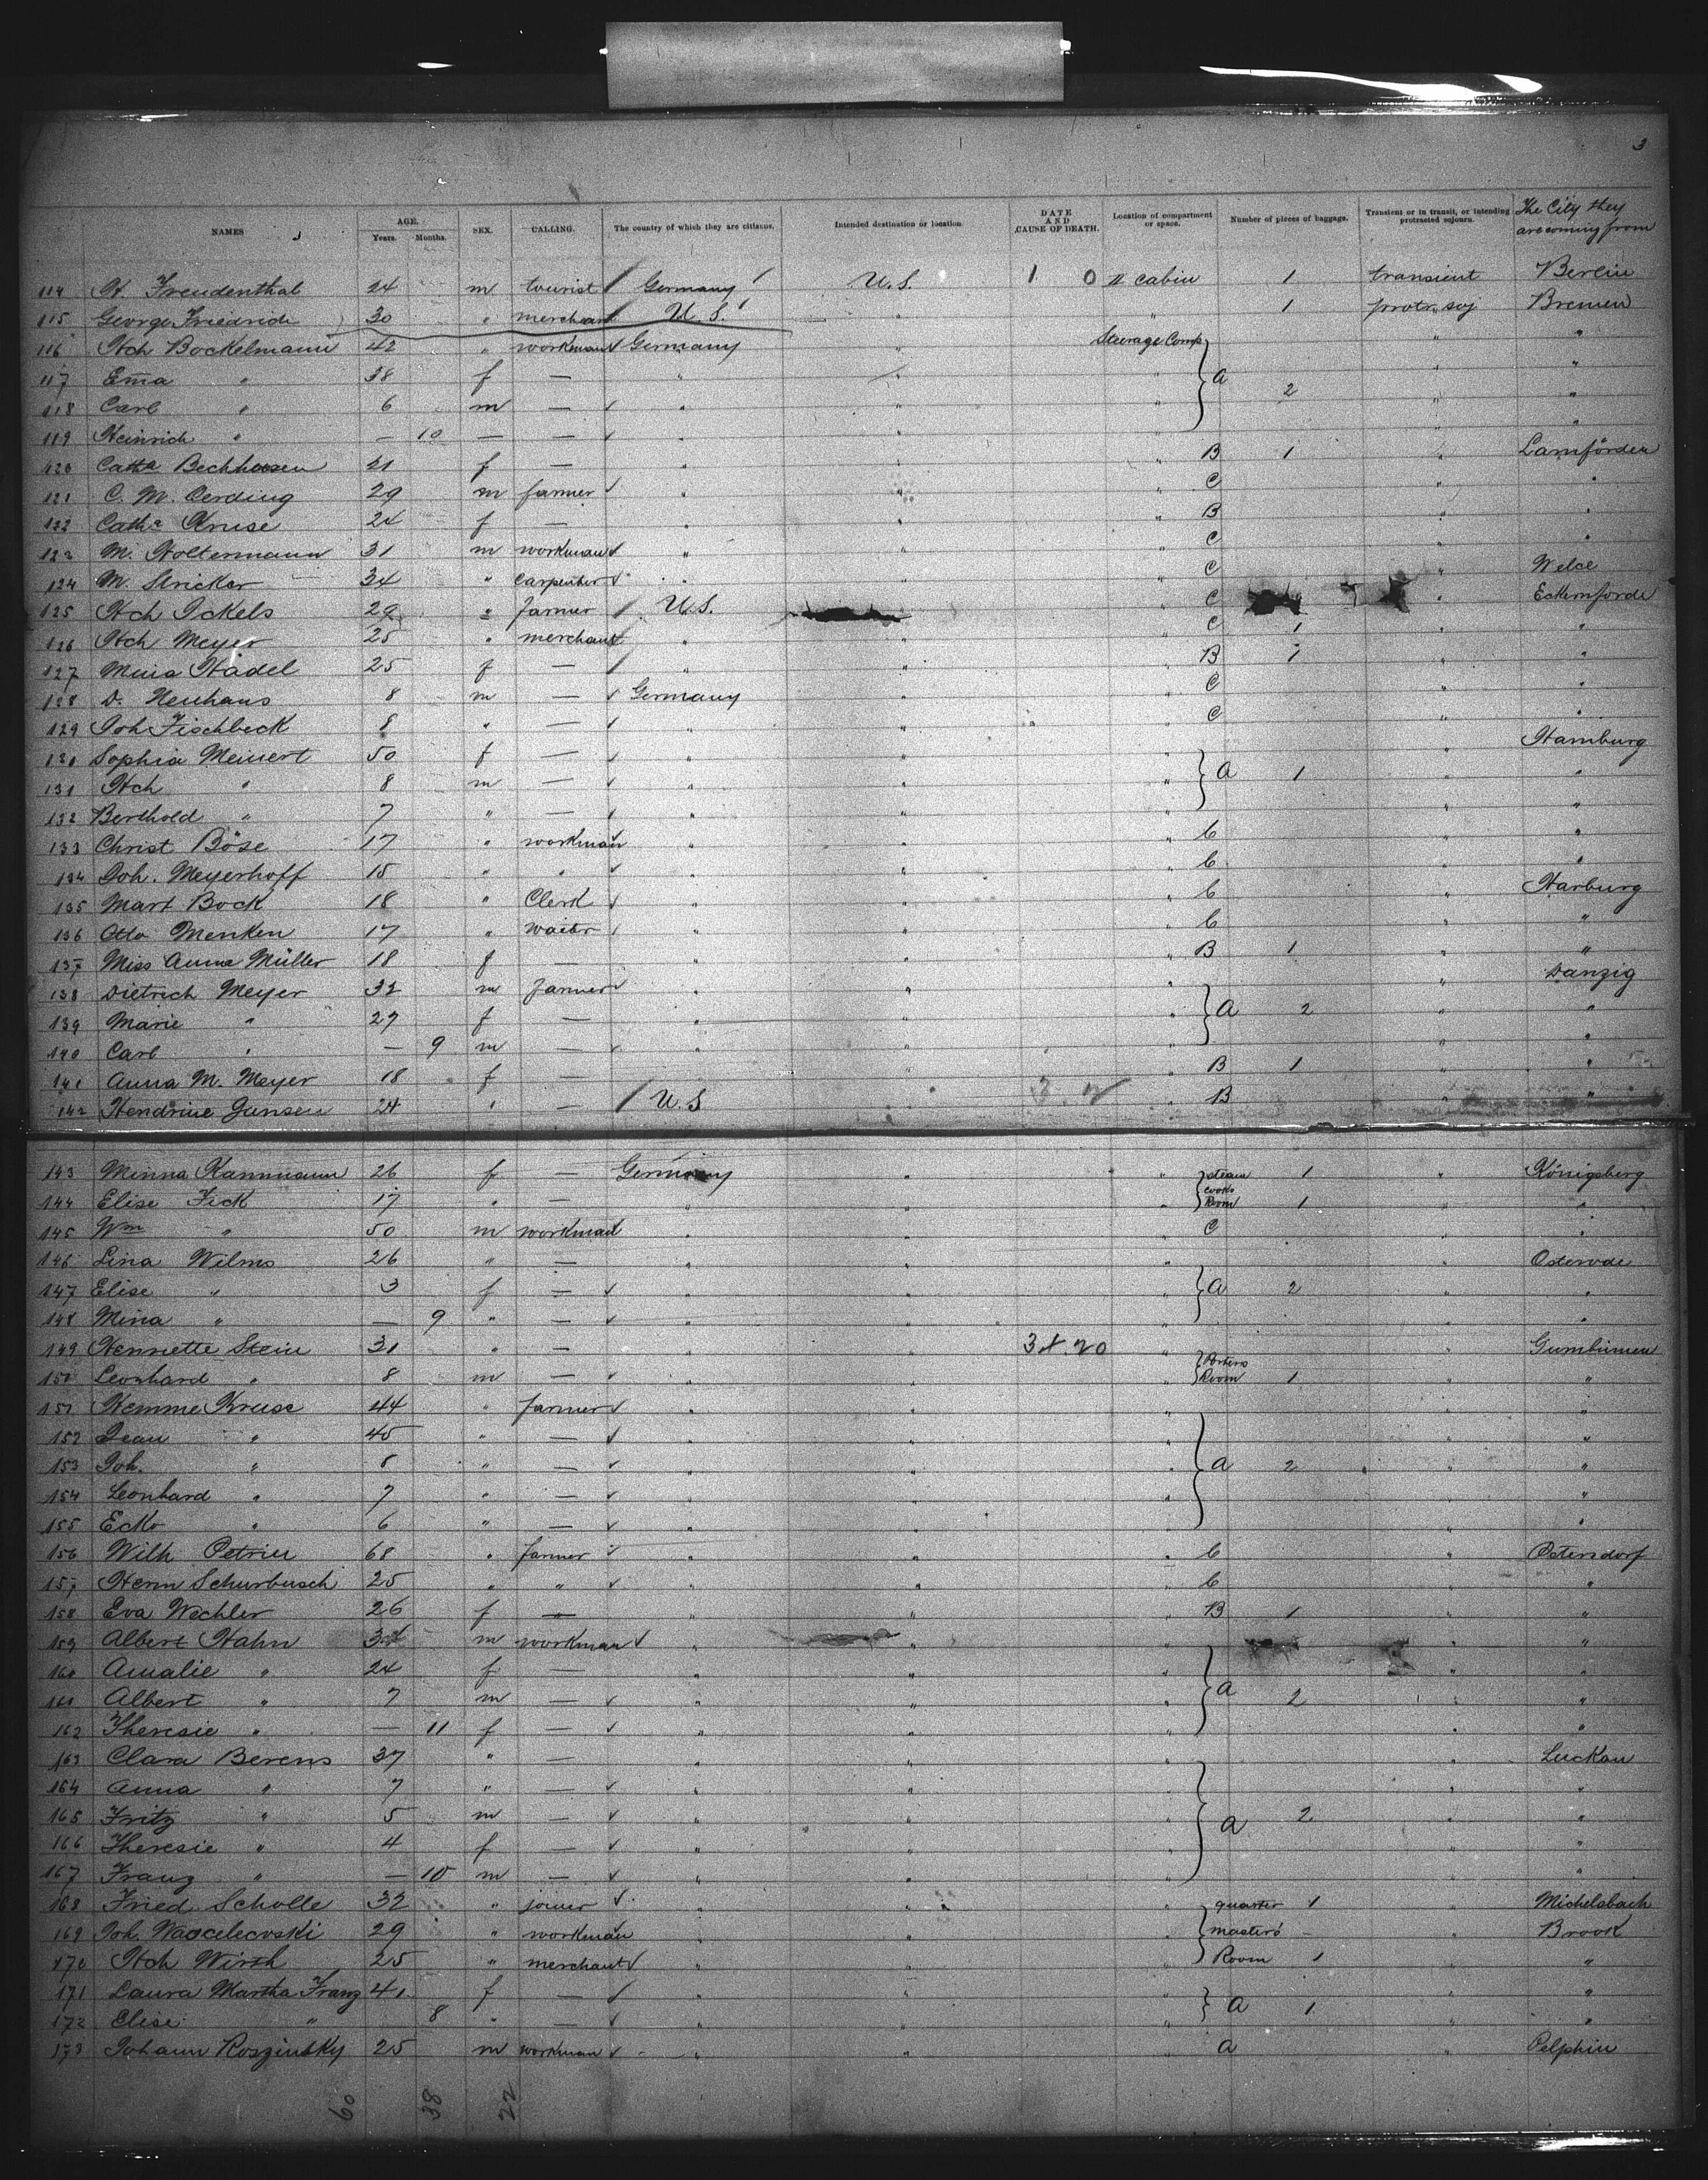 3
NAMES AGE. Years. Months. SEX. CALLING. The country of which they are citizens. Intended destination or location. DATE AND CAUSE OF DEATH. Location of compartment or space. Number of pieces of baggage. Transient or in transit, or intending protracted sojourn. The City they are coming from
114 H. Freudenthal 24 m tourist Germany U.S. 1 0 II cabin 1 transient Berlin
115 George Friedrich 30 " merchant U.S. " " 1 protr. soj Bremen
116 Hch Bockelmann 42 " workman Germany Steerage Comp " "
117 Em̄a " 38 f — " " " A 2 " "
118 Carl " 6 m — " " " " "
119 Heinrich " — 10 — — " " " "
120 Catha Bechhusen 21 f — " " " B 1 " Lamförden
121 C. M. Oerding 29 m farmer " " " C " "
122 Catha Kruse 24 f — " " " B " "
123 M. Holtermann 31 m workman " " " C " "
124 M. Stricker 34 " carpenter " " " C " Welce
125 Hch Ickels 29 " farmer U.S. " C " Eckernförde
126 Hch Meyer 25 " merchant " " " C 1 " "
127 Mina Hädel 25 f — " " " B 1 " "
128 D. Neuhaus 8 m — Germany " " C " "
129 Joh Fischbeck 8 " — " " " C "
130 Sophia Meinert 50 f — " " " " Hamburg
131 Hch " 8 m — " " " A 1 " "
132 Berthold " 7 " — " " " " "
133 Christ Böse 17 " workman " " " C " "
134 Joh. Meyerhoff 15 " " " " " C " "
135 Mart Bock 18 " Clerk " " " C " Harburg
136 Otto Menken 17 " waiter " " " C " "
137 Miss Anna Müller 18 f — " " " B 1 " "
138 Dietrich Meyer 32 m farmer " " " " Danzig
139 Marie " 27 f — " " " A 2 " "
140 Carl " — 9 m — " " " " "
141 Anna M. Meyer 18 f — " " " B 1 " "
142 Hendrine Jansen 24 " — U.S " " B " "
143 Minna Kammann 26 f — Germany " " steam 1 " Königsberg
144 Elise Fick 17 " — " " " cooks Room 1 " "
145 Wm " 50 m workman " " " C " "
146 Lina Wilms 26 " — " " " " Osterode
147 Elise " 3 f — " " " A 2 " "
148 Mina " — 9 " — " " " " "
149 Henriette Stein 31 " — " " " " Gumbinnen
150 Leonhard " 8 m — " " " Porters Room 1 " "
151 Hemme Kruse 44 " farmer " " " " "
152 Jean " 45 " — " " " " "
153 Joh. " 8 " — " " " A 2 " "
154 Leonhard " 7 " — " " " " "
155 Ecko " 6 " — " " " " "
156 Wilh Petrin 68 " farmer " " " C " Ostersdorf
157 Herm Schurbusch 25 " " " " " C " "
158 Eva Wechler 26 f — " " " B 1 " "
159 Albert Hahn 34 m workman " " " " "
160 Amalie " 24 f — " " " " "
161 Albert " 7 m — " " " A 2 " "
162 Theresie " — 11 f — " " " " "
163 Clara Berens 37 " — " " " " Luckau
164 Anna " 7 " — " " " " "
165 Fritz " 5 m — " " " A 2 " "
166 Theresie " 4 f — " " " " "
167 Franz " — 10 m — " " " " "
168 Fried Scholle 32 " joiner " " " quarter 1 " Michelsbach
169 Joh. 29 " workman " " " masters — " Brook
170 Hch Wirth 25 " merchant " " " Room 1 " "
171 Laura Martha Franz 41 f — " " " " "
172 Elise " 8 " — " " " A 1 " "
173 Johann Roszinsky 25 m workman " " " A " Pelplin
60 38 22